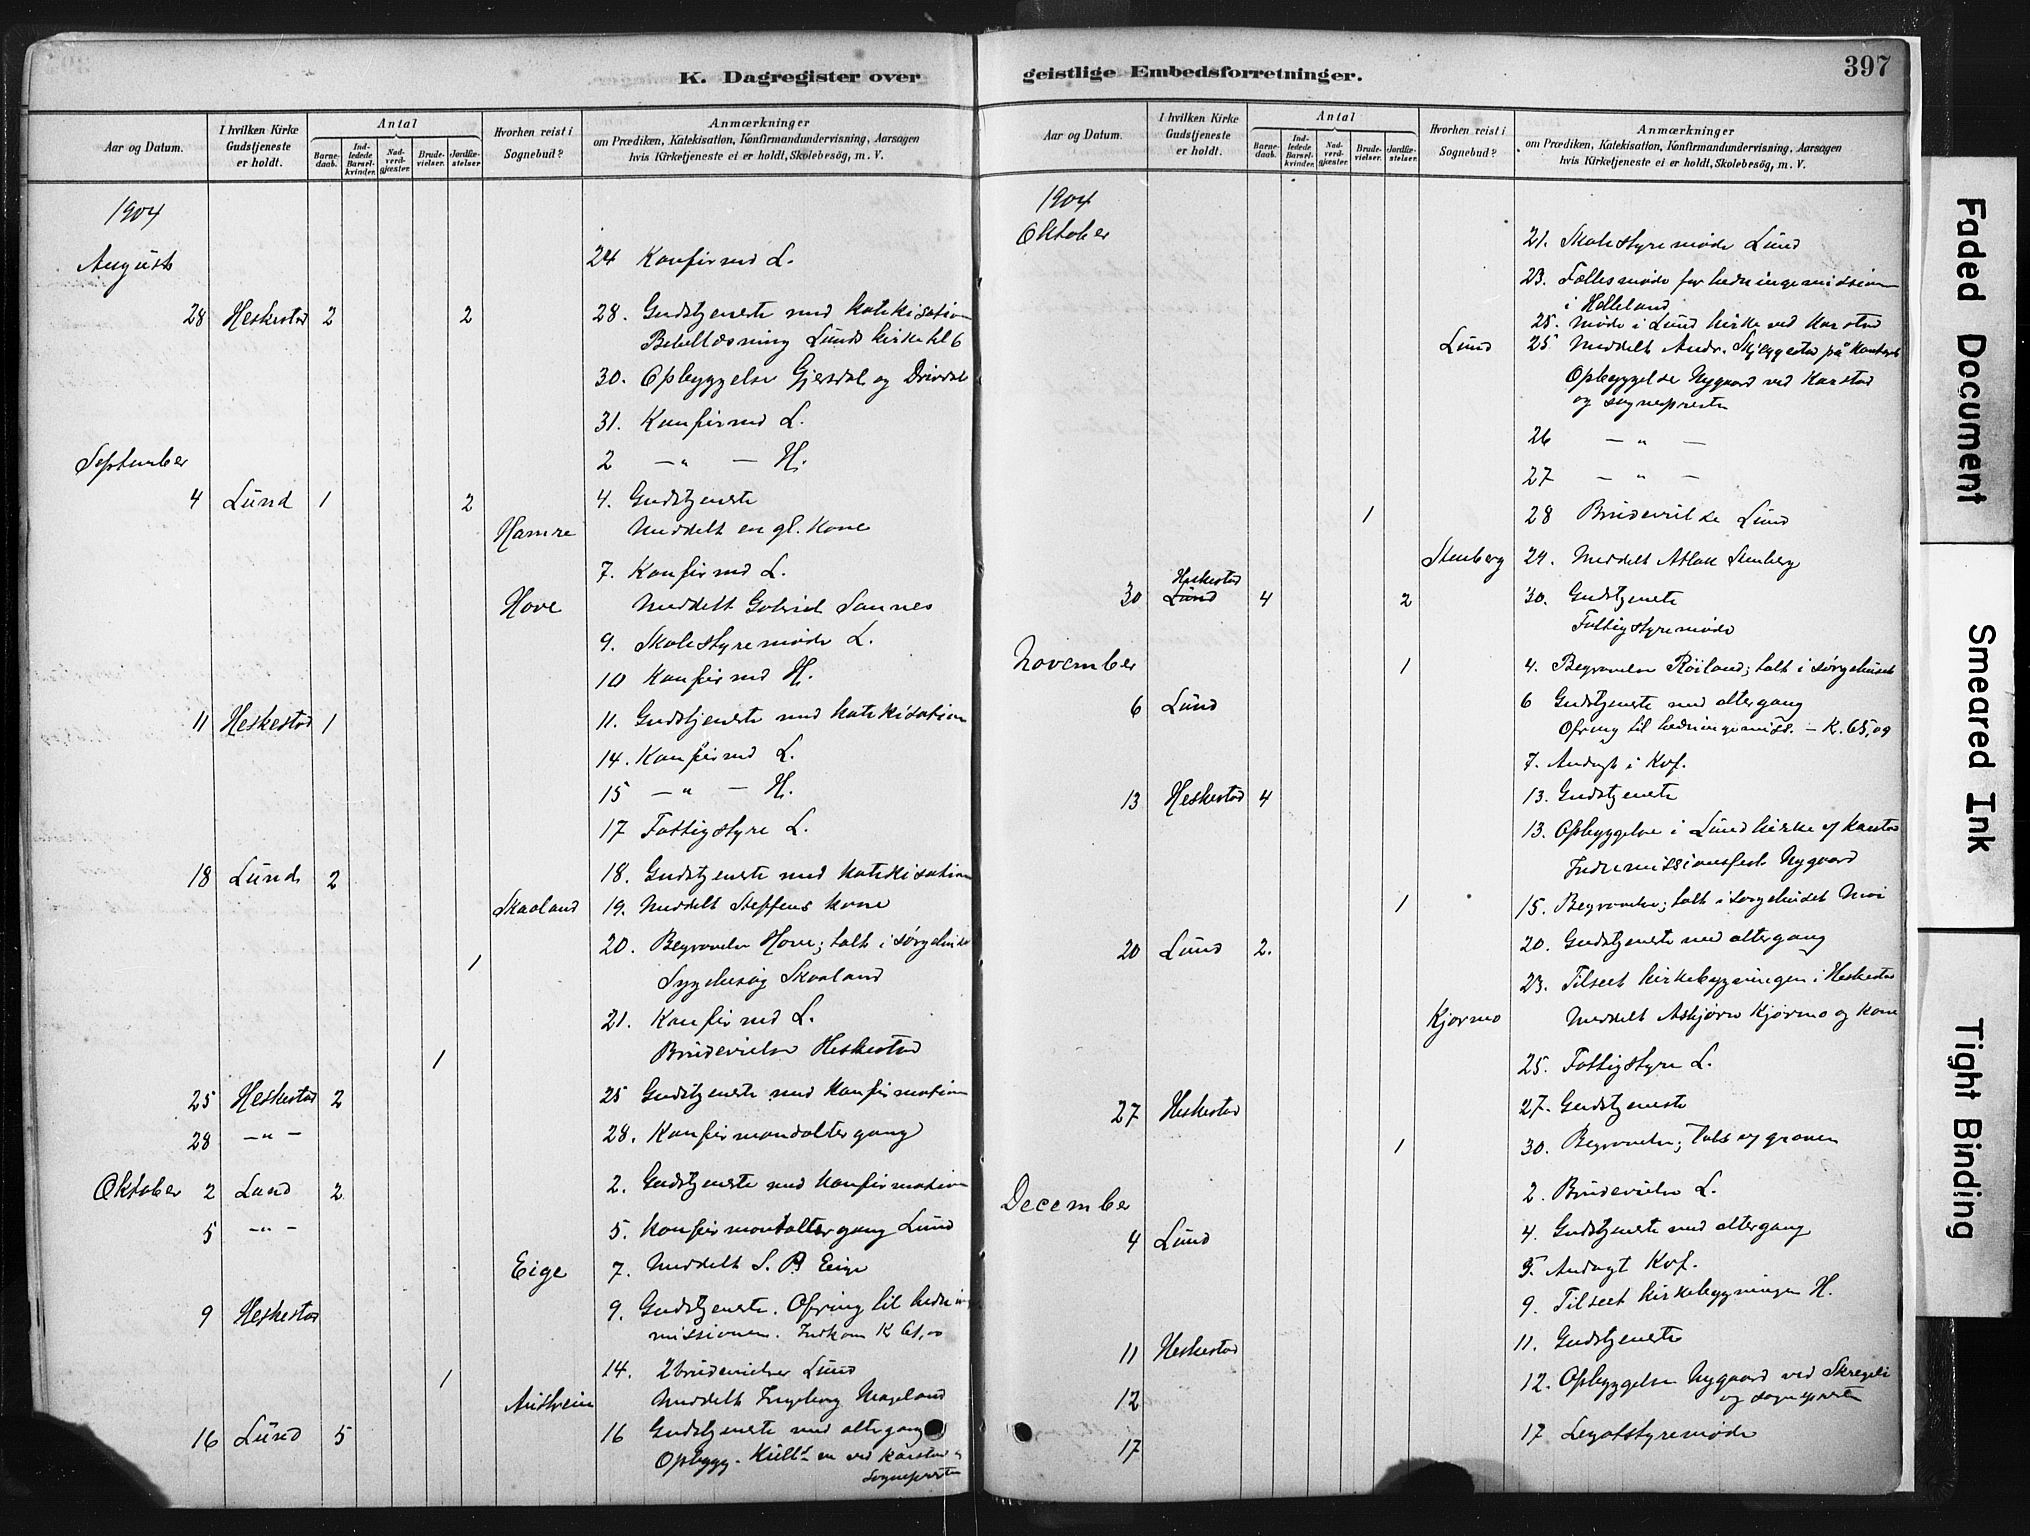 K. Dagregister over
Aar og Datum.
I hvilken Kirke Gudstjeneste er holdt.
Antal
Barnedaab.
Indledede Barselkvinder.
Nadverdgjester.
Brudevielser.
Jordfæstelser.
Hvorhen reist i Sognebud?
Anmærkninger
om Prædiken, Katekisation, Konfirmandundervisning, Aarsagen
hvis Kirketjeneste ei er holdt, Skolebesög, m. V.
1904
August
24 Konfirmd L.
28 Heskestad 2 2 28. Gudstjeneste med katekisation
Bibellæsning Lunds kirke kl 6
30. Opbyggelse Gjersdal og Drivdal
31. Konfirmd L.
September
2 — " — H.
4 Lund 1 2 4. Gudstjeneste
Hamre Meddelt en gl. kone
7. Konfirmd L.
Hove Meddelt Gabriel Sannes
9. Skolestyremøde L.
10 Konfirmd H.
11 Heskestad 1 11. Gudstjeneste med katekisation
14. Konfirmd L.
15 — " — H.
17 Fattigstyre L.
18 Lund 2 18. Gudstjeneste med katekisation
Skaaland 19. Meddelt Steffens kone
1 20. Begravelse Hove; talt i sørgehuset
Sygebesøg Skaaland
21. Konfirmd L.
1 Brudevielse Heskestad
25 Heskestad 2 25 Gudstjeneste med konfirmation
28 — " — 28. Konfirmandaltergang
Oktober 2 Lund 2 2. Gudstjeneste med konfirmation
5 — " — 5. Konfirmantaltergang Lund
Eige 7. Meddelt S. B. Eige
9 Heskestad 9. Gudstjeneste. Ofring til hedninge
missionen. Indkom K 61,00
1 14. 2 brudevielser Lund
Meddelt Ingeborg Mageland
16 Lund 5 16 Gudstjeneste med altergang
Opbygg. ved Karstad og
Sognepresten
geistlige Embedsforretninger.
397
Aar og Datum.
I hvilken Kirke Gudstjeneste er holdt.
Antal
Barnedaab.
Indledede Barselkvinder.
Nadverdgjester.
Brudevielser.
Jordfæstelser.
Hvorhen reist i Sognebud?
Anmærkninger
om Prædiken, Katekisation, Konfirmandundervisning, Aarsagen
hvis Kirketjeneste ei er holdt, Skolebesög, m. V.
1904
Oktober
21. Skolestyremøde Lund
23. Fællesmøde for hedningemission
i Helleland
25. møde i Lund kirke ved Karstad
Lund 25 Meddelt Andr. Skjeggestad på
Opbyggelse Nygaard ved Karstad
og sognepresten
26 — " —
27 — " —
1 28 Brudevielse Lund
Stenberg 29. Meddelt Aslak Stenberg
Heskestad
30 Lund 4 2 30. Gudstjeneste
Fattigstyremøde
November
1 4. Begravelse Røiland; talt i sørgehuset
6 Lund 6 Gudstjeneste med altergang
Ofring til hedningemiss. — K. 65,09
7. Andagt i Kvf.
13 Heskestad 4 13. Gudstjeneste
13. Opbyggelse i Lund kirke af Karstad
Indremissionsfest Nygaard
1 15. Begravelse; talt i sørgehuset Moi
20 Lund 2. 20. Gudstjeneste med altergang
23. Tilseet kirkebygningen i Heskestad
Kjørmo Meddelt Asbjørn Kjørmo og kone
25. Fattigstyre L.
27 Heskestad 27. Gudstjeneste
1 30. Begravelse; Tale v/ graven
December
2. Brudevielse L.
4 Lund 4. Gudstjeneste med altergang
5. Andagt Kvf.
9. Tilseet kirkebygningen H.
11 Heskestad 11. Gudstjeneste
12 12. Opbyggelse Nygaard ved Skregeli
og sognepresten
17 17 Legatstyremøde
Faded Document
Smeared Ink
Tight Binding